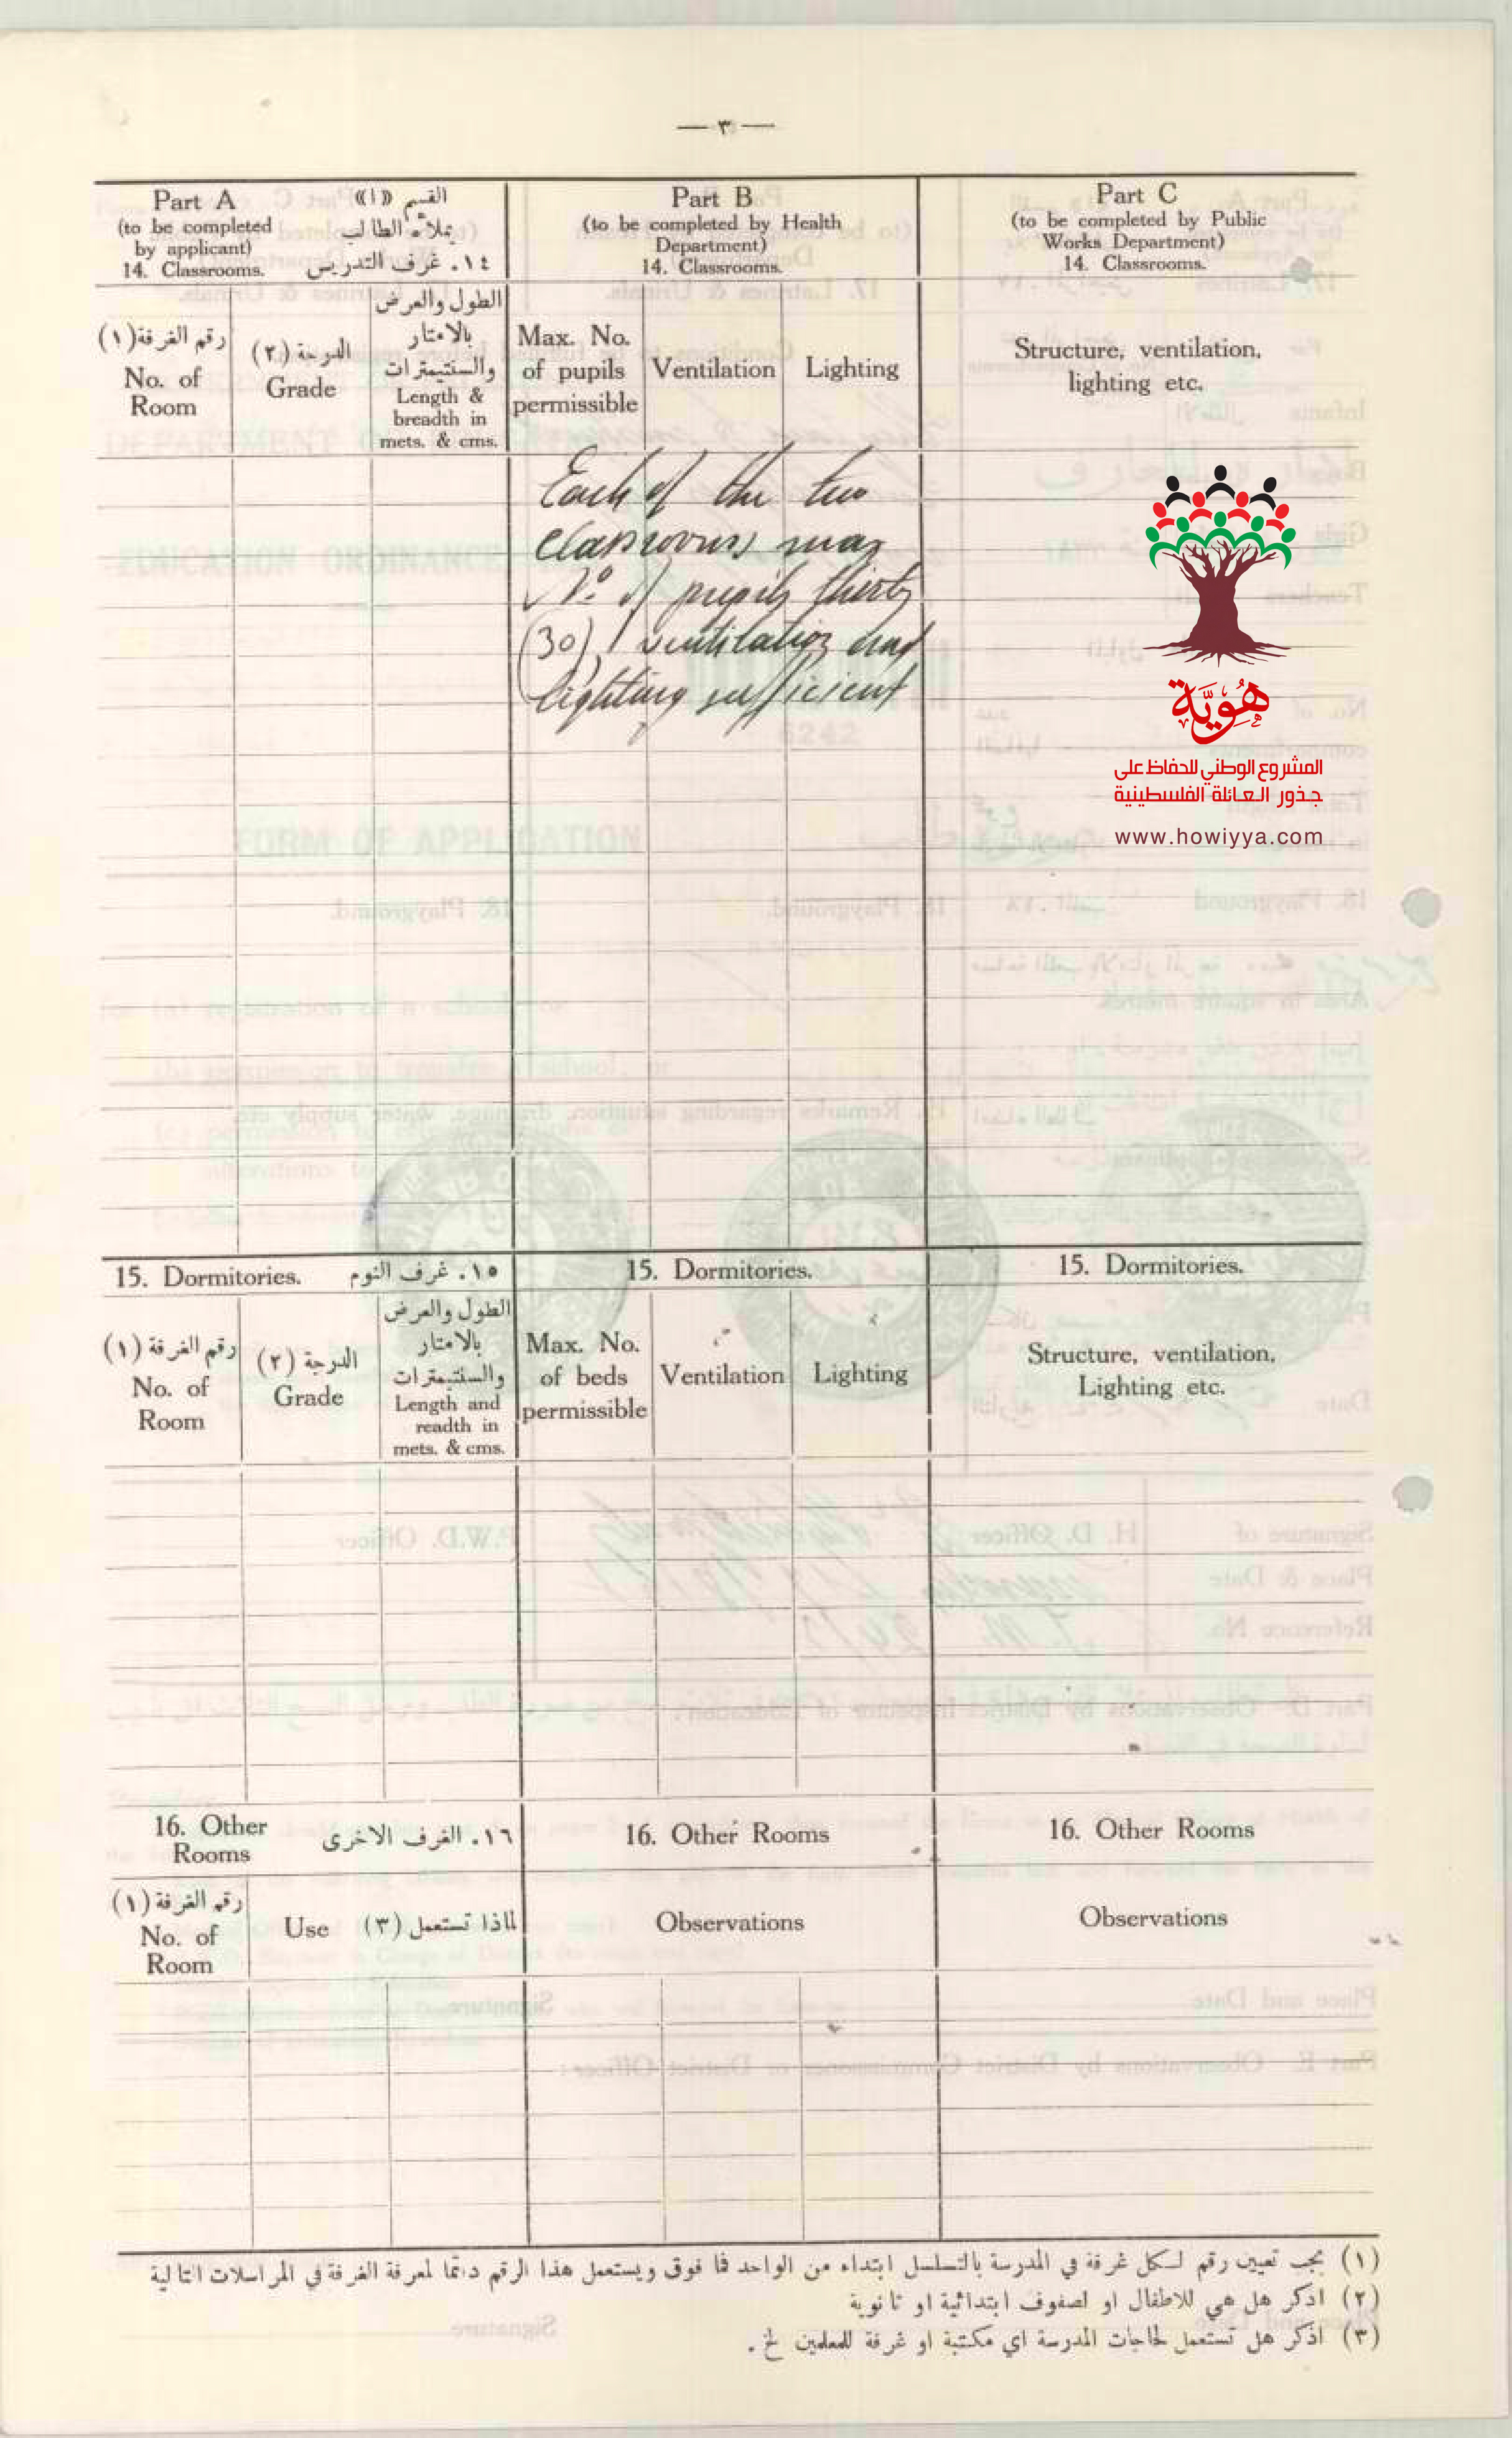 — ٣ —
Part A
(to be completed
by applicant)
14. Classrooms.
القسم «ا»
يملأه الطالب
١٤. غرف التدريس
Part B
(to be completed by Health
Department)
14. Classrooms.
Part C
(to be completed by Public
Works Department)
14. Classrooms.
رقم الغرفة (١)
No. of
Room
الدرجة (٢)
Grade
الطول والعرض
بالامتار
والسنتيمترات
Length &
breadth in
mets. & cms.
Max. No.
of pupils
permissible
Ventilation
Lighting
Structure, ventilation,
lighting etc.
Each of the two
classrooms max
No. of pupils thirty
(30), ventilation and
lighting sufficient
هُوِيَّة
المشروع الوطني للحفاظ على
جذور العائلة الفلسطينية
www.howiyya.com
15. Dormitories.
١٥. غرف النوم
15. Dormitories.
15. Dormitories.
رقم الغرفة (١)
No. of
Room
الدرجة (٢)
Grade
الطول والعرض
بالامتار
والسنتيمترات
Length and
readth in
mets. & cms.
Max. No.
of beds
permissible
Ventilation
Lighting
Structure, ventilation,
Lighting etc.
16. Other
Rooms
١٦. الغرف الاخرى
16. Other Rooms
16. Other Rooms
رقم الغرفة (١)
No. of
Room
Use
لماذا تستعمل (٣)
Observations
Observations
(١) يجب تعيين رقم لكل غرفة في المدرسة بالتسلسل ابتداء من الواحد فما فوق ويستعمل هذا الرقم دائما لمعرفة الغرفة في المراسلات التالية
(٢) اذكر هل هي للاطفال او لصفوف ابتدائية او ثانوية
(٣) اذكر هل تستعمل لحاجات المدرسة اي مكتبة او غرفة للمعلمين الخ.